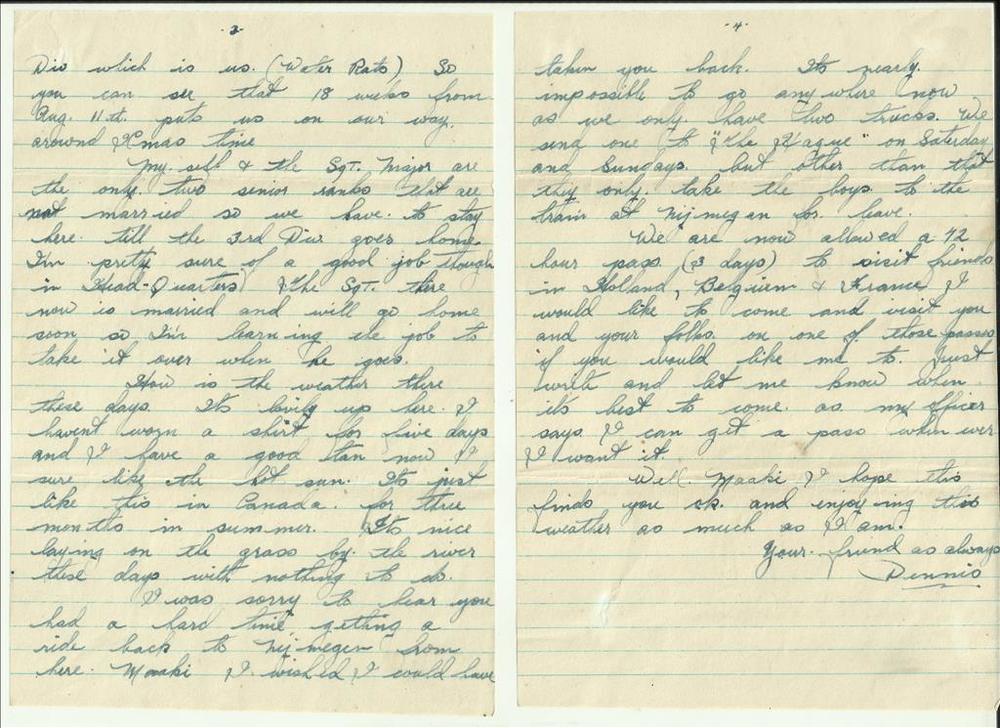 3.
Div which is us. (Water Rats) So
you can see that 18 weeks from
Aug. 11th. puts us on our way.
around Xmas time
My self & the Sgt. Major are
the only two senior ranks that are
not married so we have to stay
here till the 3rd Div goes home.
I'm pretty sure of a good job though
in Head-Quarters) The Sgt. there
now is married and will go home
soon so I'm learning the job to
take it over when he goes.
How is the weather there
these days. Its lovly up here. I
havent worn a shirt for five days
and I have a good tan now I
sure like the hot sun. Its just
like this in Canada. for three
months in summer. Its nice
laying on the grass by. the river
these days with nothing to do.
I was sorry to hear you
had a hard time getting a
ride back to Nijmegen from
here. Maaki I wished I could have
4.
taken you back. Its nearly
impossible to go any where now
as we only have two trucks. We
send one to "The Hague" on Saturday
and Sundays. but other than that
they only take the boys to the
train at Nijmegen for leave.
We are now allowed a 72
hour pass (3 days) to visit friends
in Holland, Belguim & France I
would like to come and visit you
and your folks on one of those passes
if you would like me to. Just
write and let me know when
it's best to come. as my officer
says I can get a pass when ever
I want it.
Well. Maaki I hope this
finds you ok. and enjoying this
weather as much as I am.
Your friend as always
Dennis